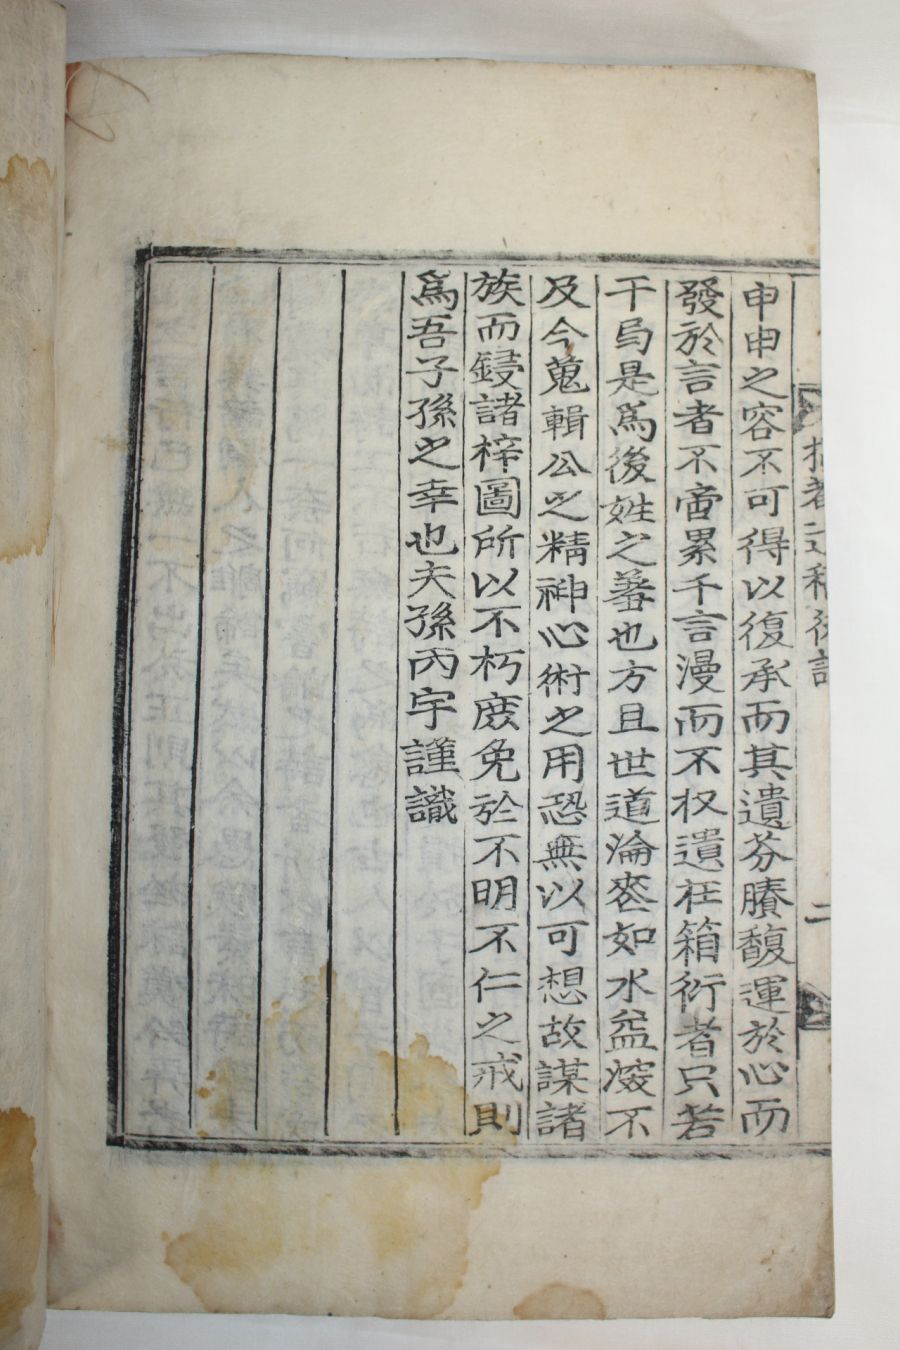 申申之容不可得以復承而其遺芬賸馥運於心而
發於言者不啻累千言漫而不权遺在箱衍者只若
干局是爲後姓之蓍也方且世道淪喪如水益深不
及今蒐輯公之精神心術之用恐無以可想故謀諸
族而鋟諸梓圖所以不朽庻免於不明不仁之戒則
爲吾子孫之幸也夫孫丙宇謹識
二